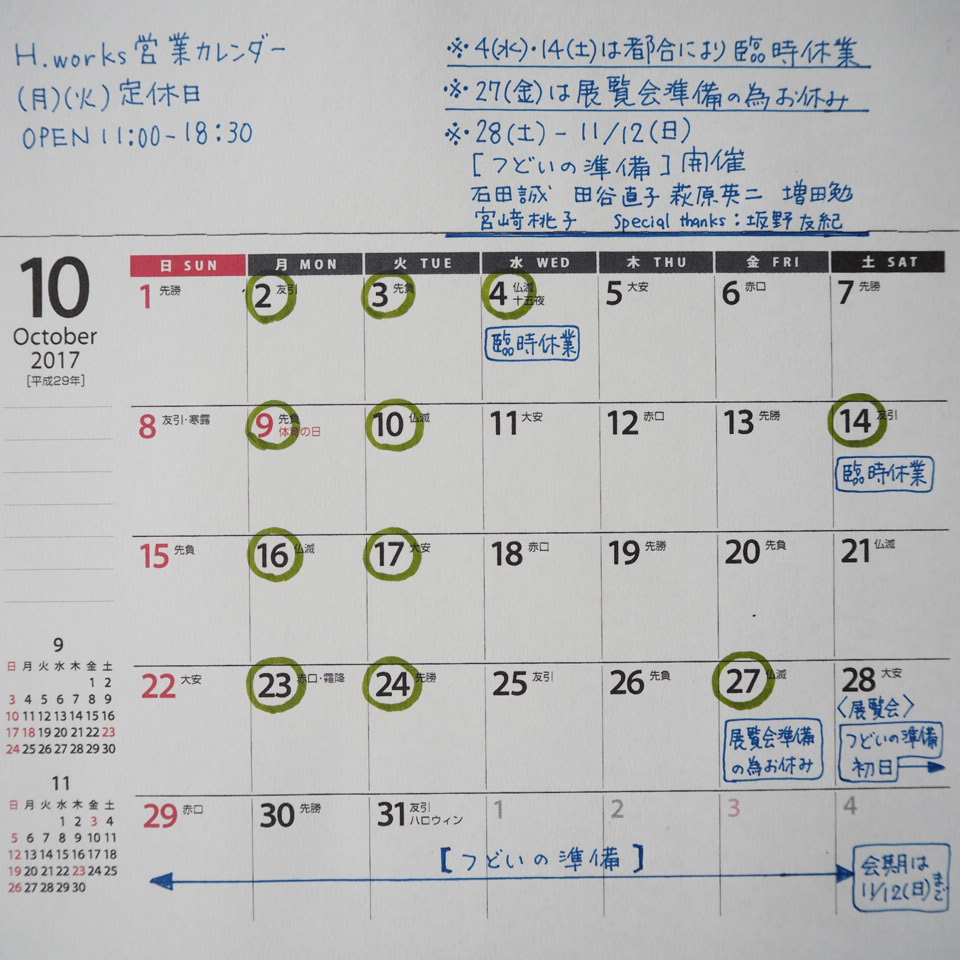 H.works営業カレンダー
(月)(火)定休日
OPEN 11:00-18:30
※・4(水)・14(土)は都合により臨時休業
※・27(金)は展覧会準備の為お休み
※・28(土)-11/12(日)
[つどいの準備]開催
石田誠 田谷直子 萩原英二 増田勉
宮﨑桃子 Special thanks:坂野友紀
10
October
2017
[平成29年]
日 SUN 月 MON 火 TUE 水 WED 木 THU 金 FRI 土 SAT
1 先勝 2 友引 3 先負 4 仏滅 十五夜 5 大安 6 赤口 7 先勝
臨時休業
8 友引・寒露 9 先負 体育の日 10 仏滅 11 大安 12 赤口 13 先勝 14 友引
臨時休業
15 先負 16 仏滅 17 大安 18 赤口 19 先勝 20 先負 21 仏滅
22 大安 23 赤口・霜降 24 先勝 25 友引 26 先負 27 仏滅 28 大安
展覧会準備
の為お休み
〈展覧会〉
つどいの準備
初日
29 赤口 30 先勝 31 友引 ハロウィン 1 2 3 4
[つどいの準備]
会期は
11/12(日)まで
9
日 月 火 水 木 金 土
1 2
3 4 5 6 7 8 9
10 11 12 13 14 15 16
17 18 19 20 21 22 23
24 25 26 27 28 29 30
11
日 月 火 水 木 金 土
1 2 3 4
5 6 7 8 9 10 11
12 13 14 15 16 17 18
19 20 21 22 23 24 25
26 27 28 29 30